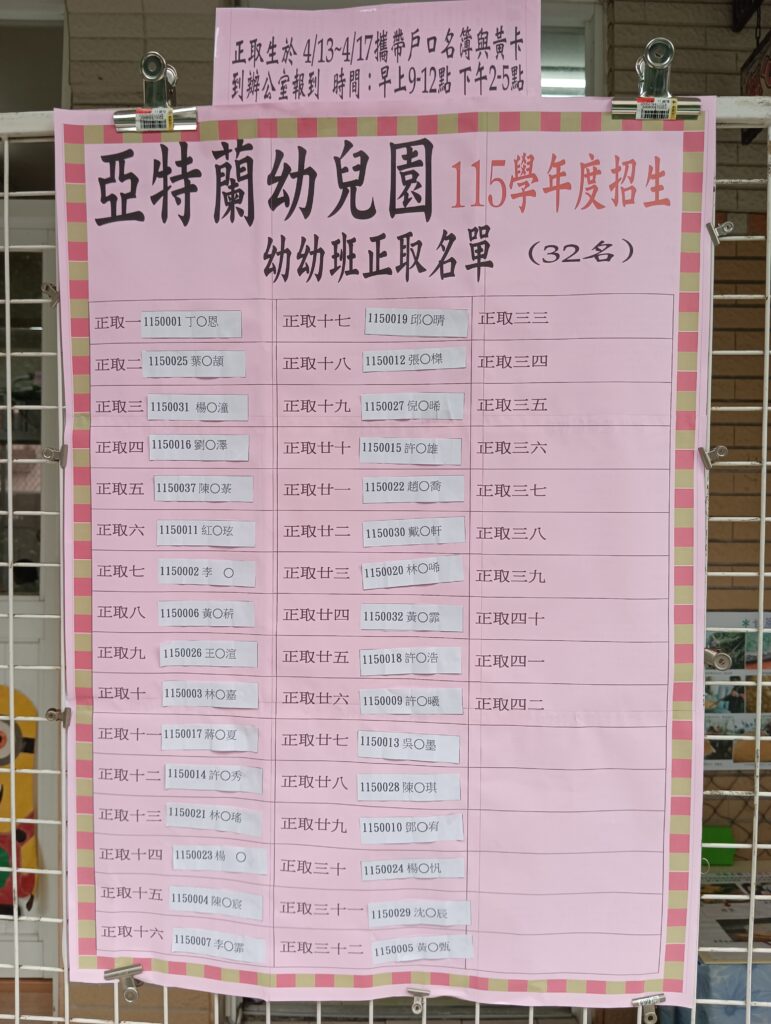 正取生於 4/13~4/17攜帶戶口名簿與黃卡
到辦公室報到 時間：早上9-12點 下午2-5點
亞特蘭幼兒園 115學年度招生
幼幼班正取名單 （32名）
正取一 1150001 丁〇恩
正取二 1150025 葉〇頡
正取三 1150031 楊〇潼
正取四 1150016 劉〇澤
正取五 1150037 陳〇荼
正取六 1150011 紅〇玹
正取七 1150002 李 〇
正取八 1150006 黃〇
正取九 1150026 王〇渲
正取十 1150003 林〇嘉
正取十一 1150017 蔣〇夏
正取十二 1150014 許〇秀
正取十三 1150021 林〇瑤
正取十四 1150023 楊 〇
正取十五 1150004 陳〇宸
正取十六 1150007 李〇霏
正取十七 1150019 邱〇晴
正取十八 1150012 張〇榤
正取十九 1150027 倪〇晞
正取廿十 1150015 許〇雄
正取廿一 1150022 趙〇喬
正取廿二 1150030 戴〇軒
正取廿三 1150020 林〇唏
正取廿四 1150032 黃〇霏
正取廿五 1150018 許〇浩
正取廿六 1150009 許〇曦
正取廿七 1150013 吳〇墨
正取廿八 1150028 陳〇琪
正取廿九 1150010 鄧〇宥
正取三十 1150024 楊〇忛
正取三十一 1150029 沈〇宸
正取三十二 1150005 黃〇甄
正取三三
正取三四
正取三五
正取三六
正取三七
正取三八
正取三九
正取四十
正取四一
正取四二